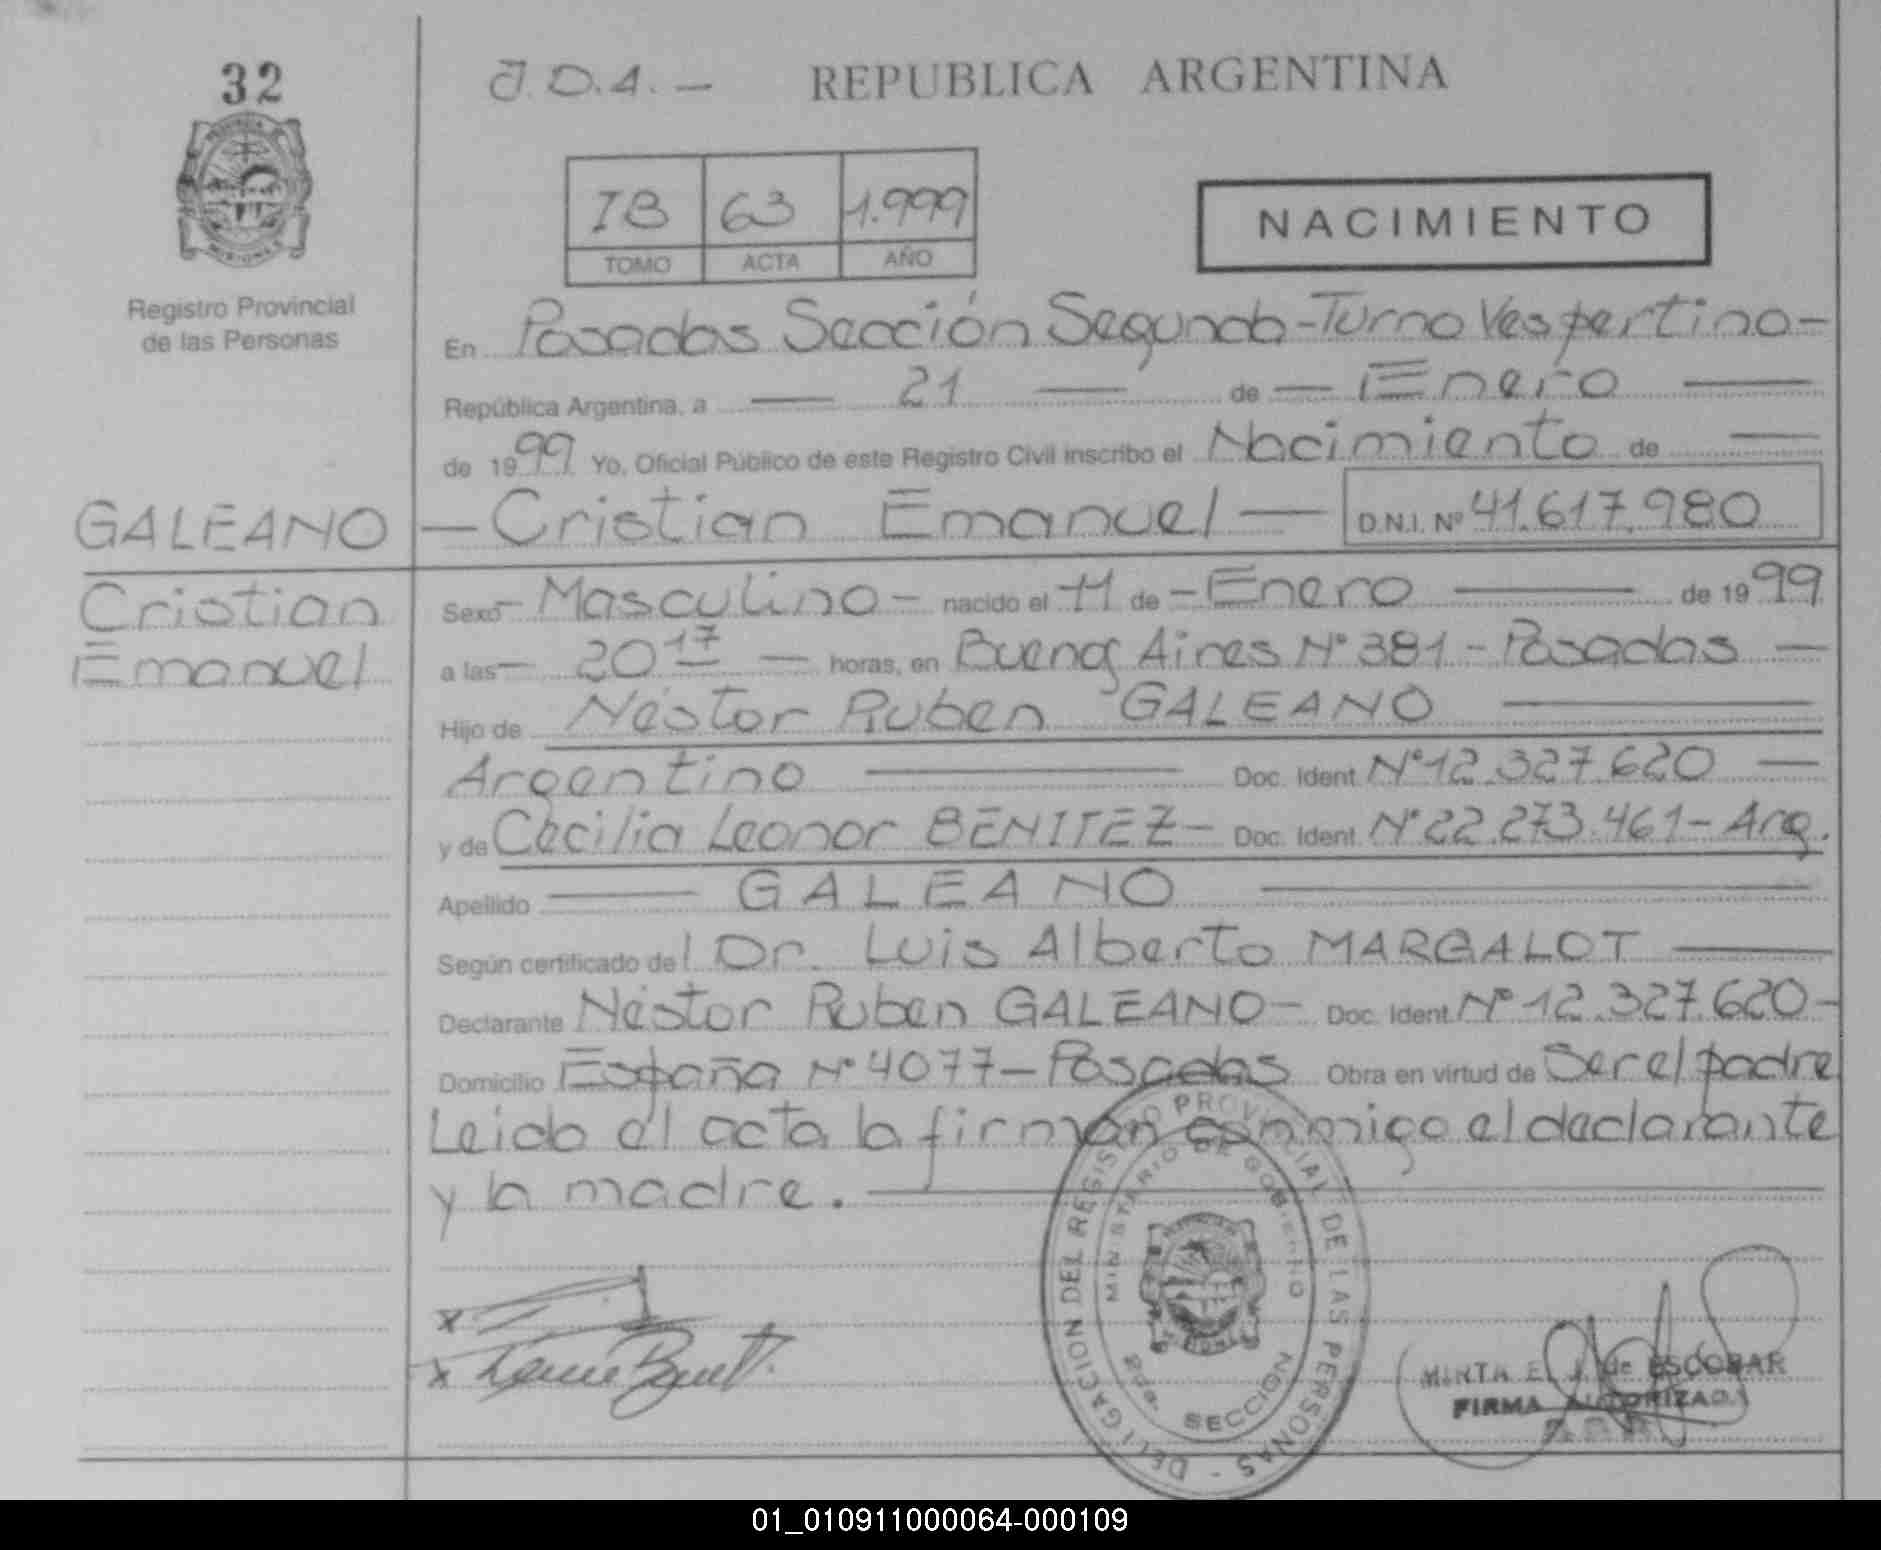 32
J.D.A. —
REPUBLICA ARGENTINA
IB 63 1.999
TOMO ACTA AÑO
NACIMIENTO
Registro Provincial
de las Personas
En Posadas Sección Segunda - Turno Vespertino -
República Argentina, a — 21 — de — Enero —
de 1999 Yo, Oficial Público de este Registro Civil inscribo el Nacimiento de —
GALEANO — Cristian Emanuel — D.N.I. Nº 41.617.980
Cristian
Emanuel
Sexo - Masculino - nacido el 11 de - Enero — de 1999
a las — 20 17 — horas, en Buenos Aires Nº 381 - Posadas —
Hijo de Néstor Ruben GALEANO —
Argentino — Doc. Ident. Nº 12.327.620 —
y de Cecilia Leonor BENITEZ - Doc. Ident. Nº 22.273.461 - Arg.
Apellido — GALEANO —
Según certificado del Dr. Luis Alberto MARGALOT —
Declarante Néstor Ruben GALEANO - Doc. Ident. Nº 12.327.620 -
Domicilio España Nº 4077 - Posadas Obra en virtud de Ser el padre
Leido el acta la firman conmigo el declarante
y la madre. —
DELEGACION DEL REGISTRO PROVINCIAL DE LAS PERSONAS -
MINISTERIO DE GOBIERNO
2da. SECCION
MIRTA E. J. de ESCOBAR
FIRMA AUTORIZADA
01_010911000064-000109